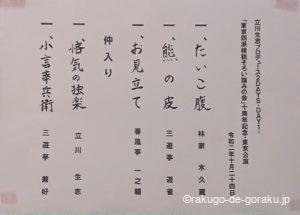 立川生志プロデュース2DAYS・DAY1
「東京四派精鋭そろい踏みの会・十周年記念・東京公演
令和二年十月二十四日
一、たいこ腹
林家 木久蔵
一、熊の皮
三遊亭 遊雀
一、お見立て
春風亭 一之輔
仲入り
一、悋気の独楽
立川 生志
一、小言幸兵衛
三遊亭 兼好
©rakugo-de-goraku.jp